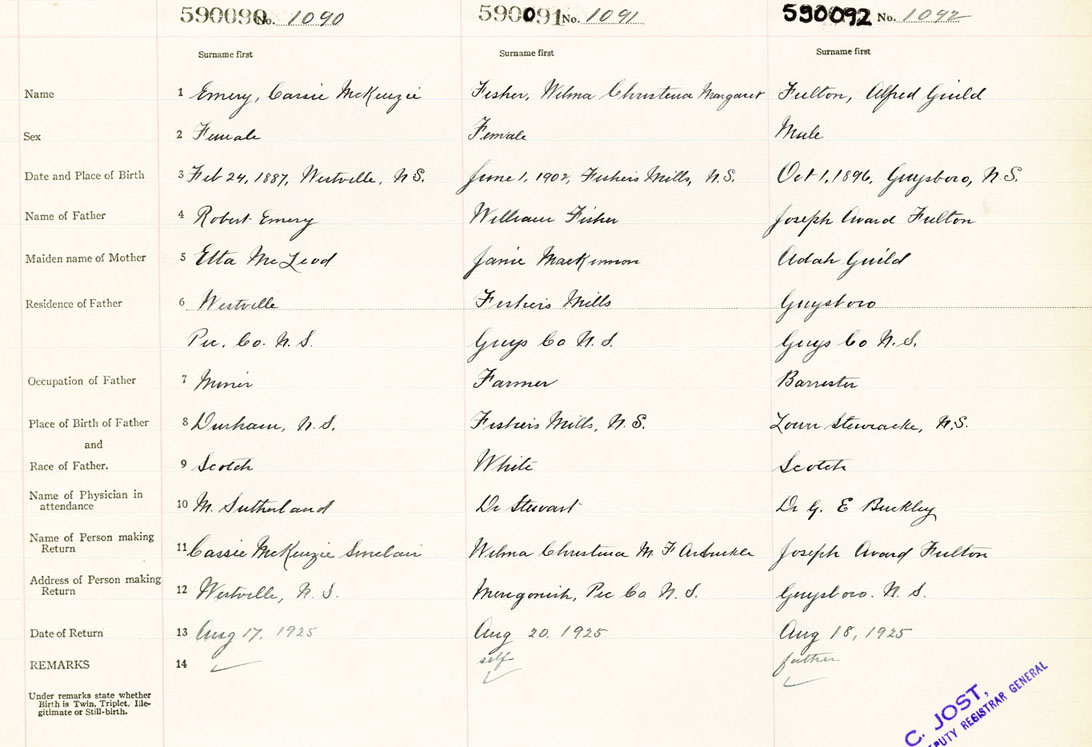 590090 No. 1090 590091 No. 1091 590092 No. 1092
Surname first Surname first Surname first
Name 1 Emery, Cassie McKenzie Fisher, Wilma Christena Margaret Fulton, Alfred Guild
Sex 2 Female Female Male
Date and Place of Birth 3 Feb 24, 1887, Westville, N.S. June 1, 1902, Fishers Mills, N.S. Oct 1, 1896, Guysboro, N.S.
Name of Father 4 Robert Emery William Fisher Joseph Award Fulton
Maiden name of Mother 5 Etta McLeod Janie MacKinnon Adah Guild
Residence of Father 6 Westville Fishers Mills Guysboro
Pic. Co. N.S. Guys Co N.S. Guys Co N.S.
Occupation of Father 7 Miner Farmer Barrester
Place of Birth of Father 8 Durham, N.S. Fishers Mills, N.S. Lower Stewiacke, N.S.
and
Race of Father. 9 Scotch White Scotch
Name of Physician in attendance 10 M. Sutherland Dr Stewart Dr G. E Buckley
Name of Person making Return 11 Cassie McKenzie Sinclair Wilma Christena M. F Arbuckle Joseph Award Fulton
Address of Person making Return 12 Westville, N.S. Merigonish, Pic Co N.S. Guysboro. N.S.
Date of Return 13 Aug 17, 1925 Aug 20, 1925 Aug 18, 1925
REMARKS 14 self father
Under remarks state whether
Birth is Twin, Triplet, Ille-
gitimate or Still-birth.
C. JOST,
DEPUTY REGISTRAR GENERAL